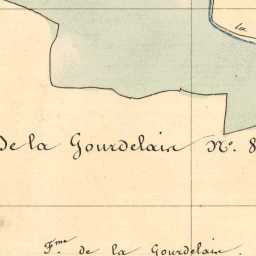 la
de la Gourdelaie N.º 8
F.me de la Gourdelaie.